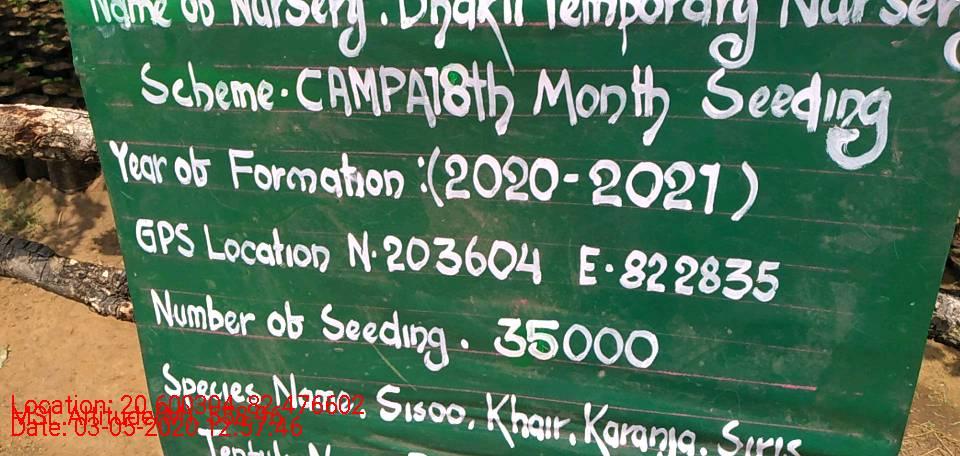 Name ob Nursery. Dhakli Temporary Nursery
Scheme. CAMPA 18th Month Seeding
Year ob Formation :(2020-2021)
GPS Location N. 203604 E. 822835
Number ob Seeding. 35000
Species Name. Sisoo, Khair, Karanja, Siris
Location: 20.600304, 82.476602
MSL Altitude
Date: 03-05-2020 12:57:46